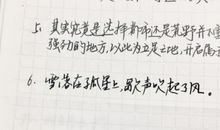 5、其实究竟是选择都市还是荒野并不重
强劲的地方,以此为立足之地,开启属于
6、雪落在了纸垫上,歌声吹起了风。